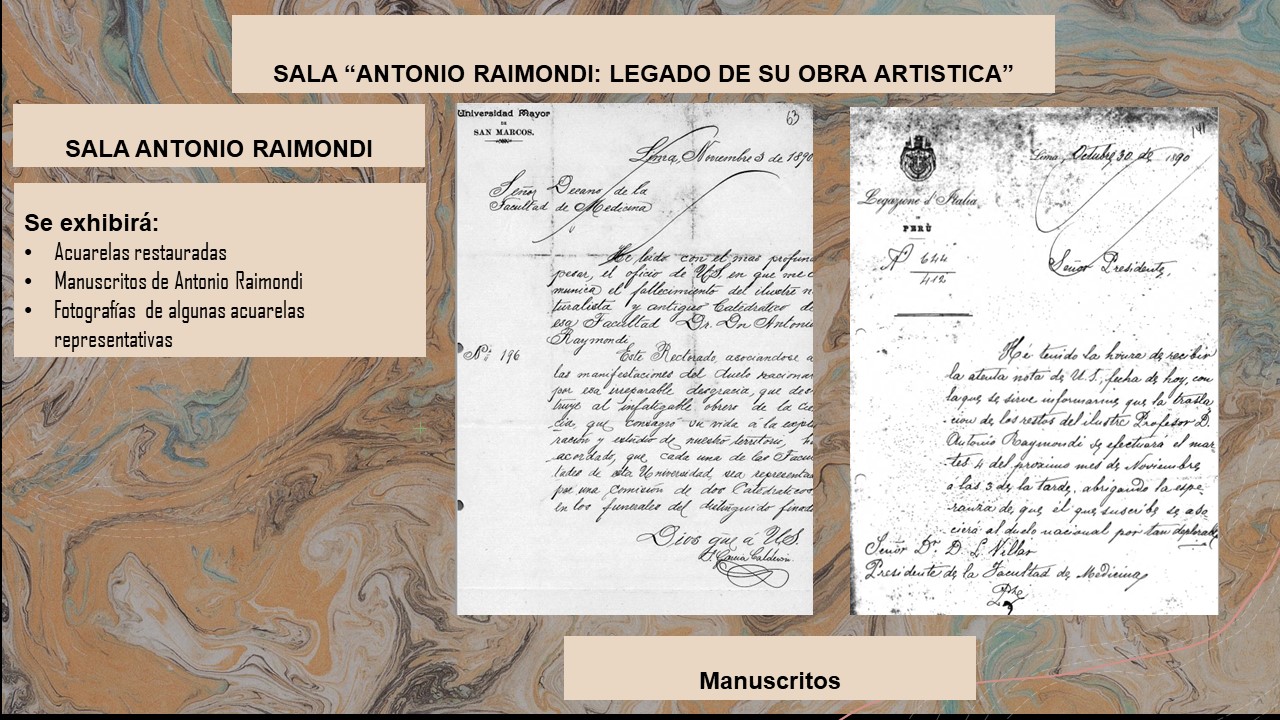 SALA “ANTONIO RAIMONDI: LEGADO DE SU OBRA ARTISTICA”
SALA ANTONIO RAIMONDI
Se exhibirá:
• Acuarelas restauradas
• Manuscritos de Antonio Raimondi
• Fotografías de algunas acuarelas
representativas
Universidad Mayor
DE
SAN MARCOS.
63
Lima, Noviembre 3 de 1890
Señor Decano de la
Facultad de Medicina
He leido con el mas profun
pesar, el oficio de US en que me c
munica el fallecimiento del ilustre n
turalista y antiguo Catedratico de
esa Facultad Dr. Don Antonio
Raymondi.
Nº 196
Este Rectorado, asociandose a
las manifestaciones del duelo nacional
por esa irreparable desgracia, que des
truye al infatigable obrero de la cie
cia, que consagró su vida á la explo
ración y estudio de nuestro territorio, h
acordado, que cada una de las Facul
tades de esta Universidad sea representa
por una comisión de dos Catedraticos
en los funerales del distinguido finad
Dios gue á US.
F. García Calderón
141
Lima, Octubre 30 de 1890
Legazione d'Italia
IN
PERÙ
Nº 644
412
Señor Presidente
He tenido la honra de recibir
la atenta nota de U.S, fecha de hoy, con
la que se sirve informarme que la trasla
cion de los restos del ilustre Profesor D.
Antonio Raymondi se efectuará el mar
tes 4 del proximo mes de Noviembre
a las 3 de la tarde, abrigando la espe
ranza de que el que suscribe se aso
ciará al duelo nacional por tan deplorable
Señor Dr. D. L. Villar
Presidente de la Facultad de Medicina
Manuscritos